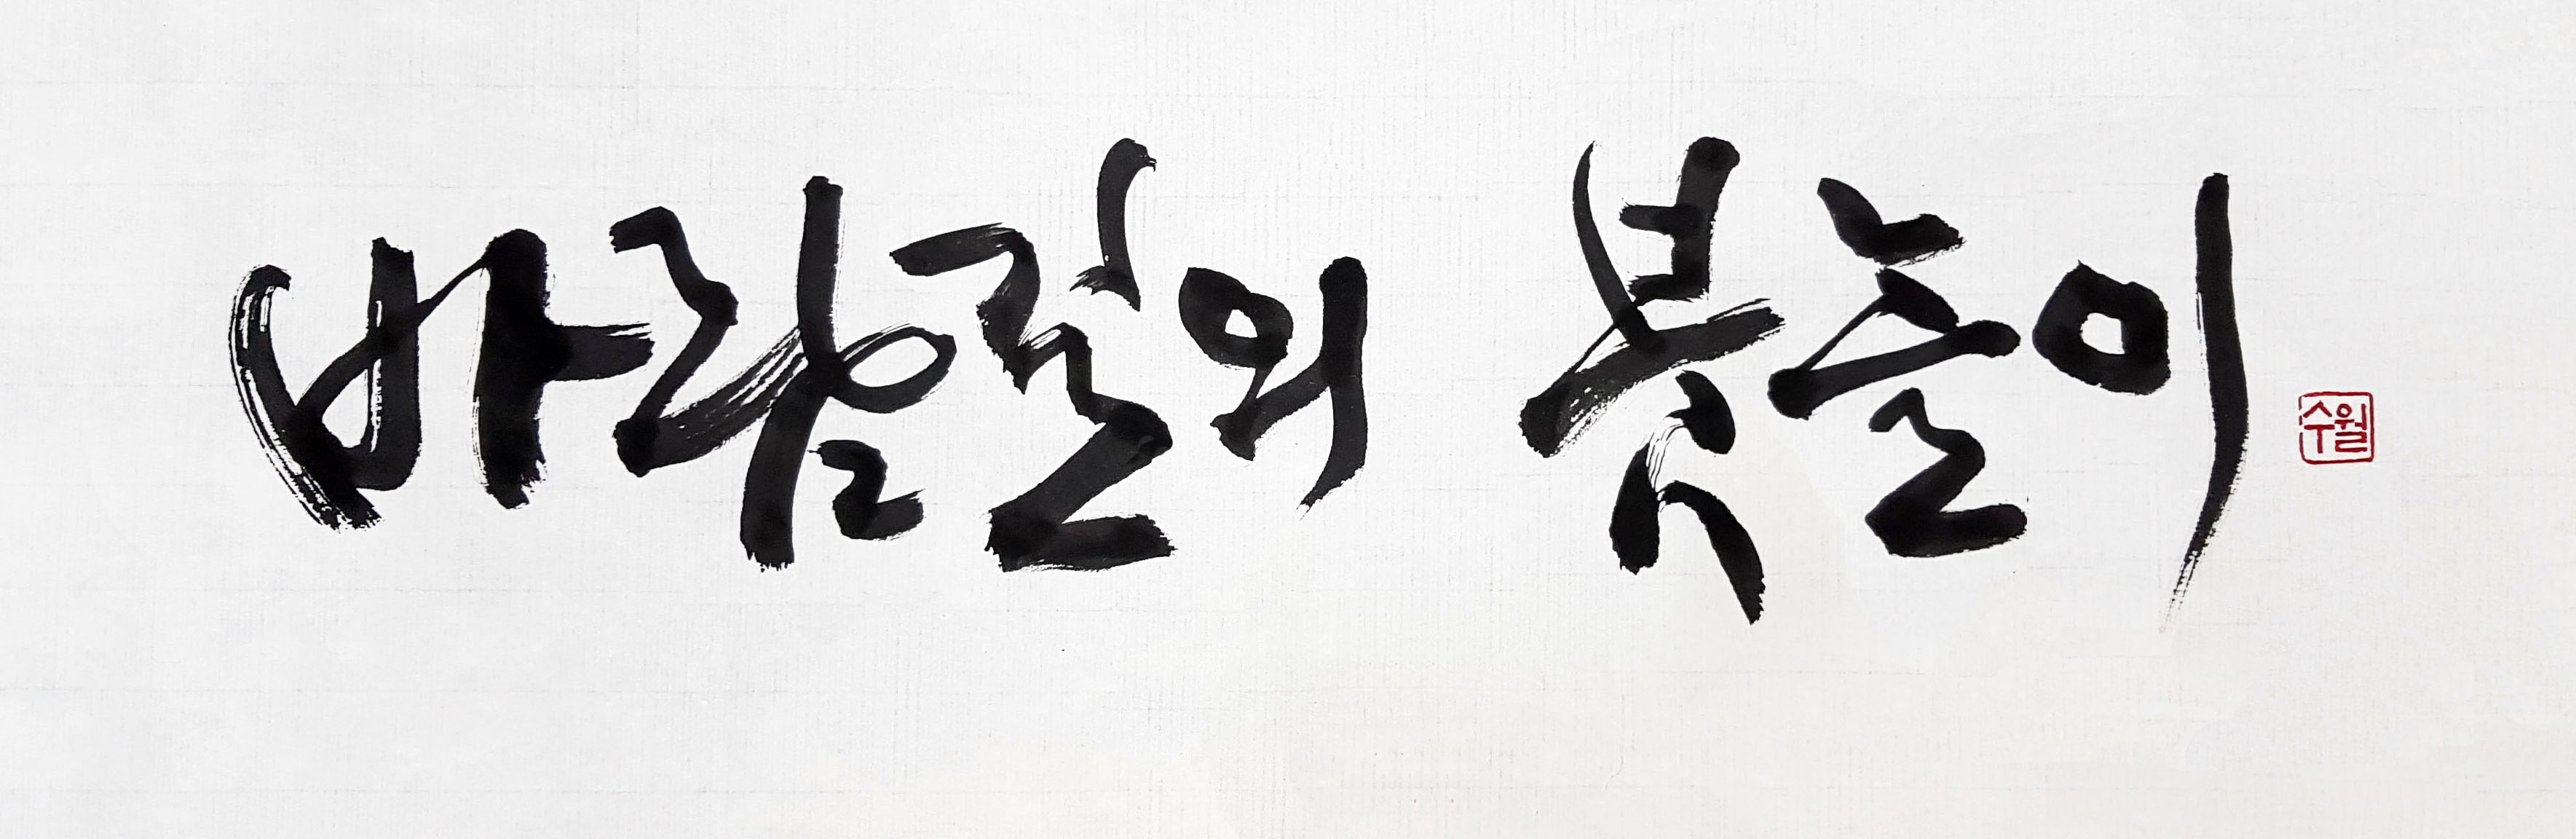 바람길의 붓놀이
수월